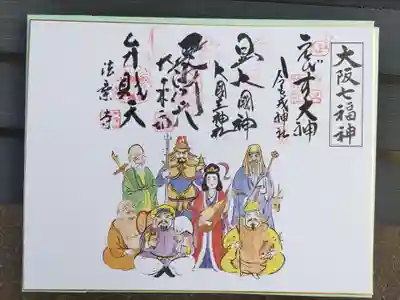 大阪七福神
ゑびす大神
今宮戎神社
日出大國神
大國主神社
毘沙門天
大乗坊
弁財天
法案寺